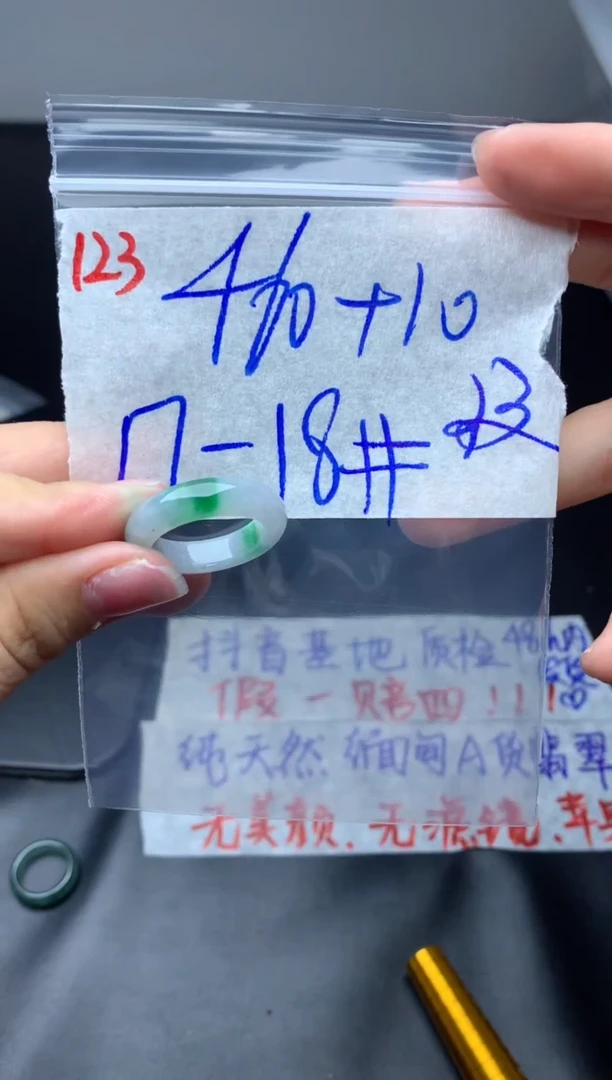 123
+10
17-18#
抖音基地 质检48h内
假一赔四!!!
纯天然 缅甸A货翡翠
无美颜.无滤镜.苹